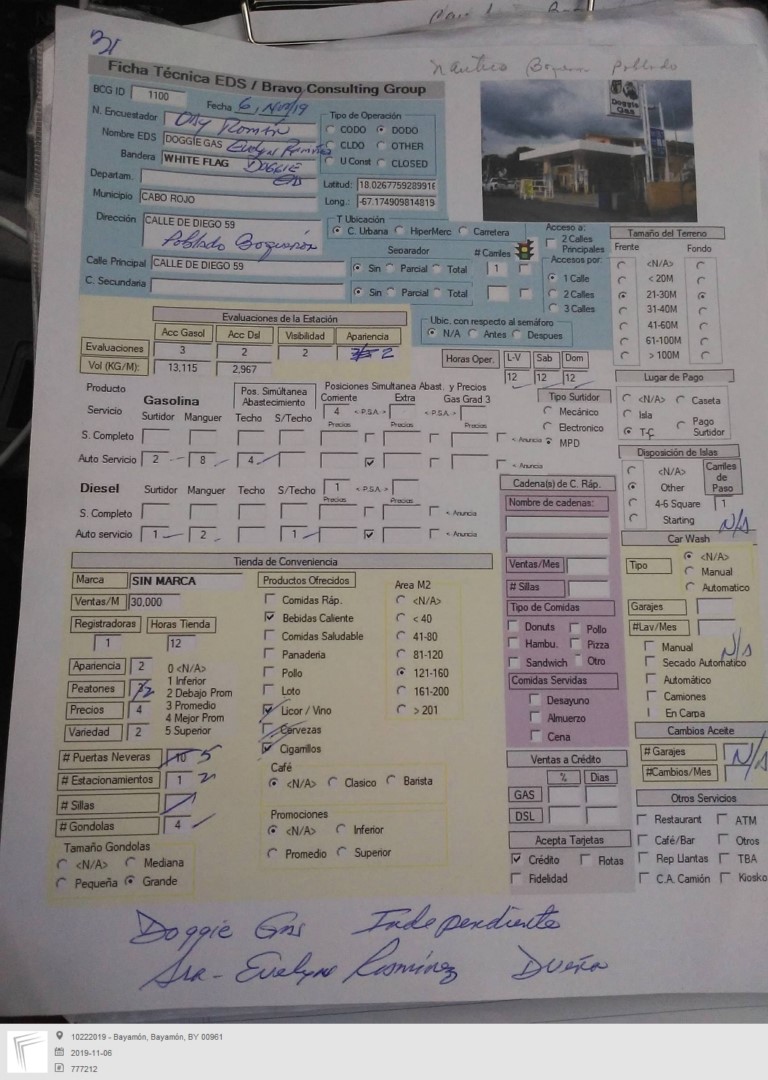 Nautico Boqueron Poblado
Ficha Técnica EDS / Bravo Consulting Group
BCG ID 1100
Fecha 6, Nov/19
N. Encuestador Román
Nombre EDS DOGGIE GAS Evelyn Ramírez
Bandera WHITE FLAG DOGGIE
Departam.
Municipio CABO ROJO
Tipo de Operación
CODO DODO
CLDO OTHER
U Const CLOSED
Latitud: 18.0267759289916
Long.: -67.174909814819
Doggie Gas
Dirección CALLE DE DIEGO 59
Poblado Boquerón
Calle Principal CALLE DE DIEGO 59
C. Secundaria
T Ubicación
C. Urbana HiperMerc Carretera
Separador # Carriles
Sin Parcial Total 1
Sin Parcial Total
Acceso a:
2 Calles Principales
Accesos por:
1 Calle
2 Calles
3 Calles
Tamaño del Terreno
Frente Fondo
<N/A>
< 20M
21-30M
31-40M
41-60M
61-100M
> 100M
Evaluaciones de la Estación
Acc Gasol Acc Dsl Visibilidad Apariencia
Evaluaciones 3 2 2 2
Vol (KG/M): 13,115 2,967
Ubic. con respecto al semáforo
N/A Antes Despues
Horas Oper. L-V Sab Dom
12 12 12
Producto Gasolina
Pos. Simúltanea Abastecimiento
Posiciones Simultanea Abast. y Precios
Corriente Extra Gas Grad 3
4 <-P.S.A.-> <-P.S.A.->
Servicio Surtidor Manguer Techo S/Techo Precios Precios Precios
S. Completo <- Anuncia
Auto Servicio 2 8 4 <- Anuncia
Tipo Surtidor
Mecánico
Electronico
MPD
Lugar de Pago
<N/A> Caseta
Isla Pago Surtidor
T-C
Diesel Surtidor Manguer Techo S/Techo 1 <-P.S.A.->
Precios Precios
S. Completo <- Anuncia
Auto servicio 1 2 1 <- Anuncia
Disposición de Islas
<N/A>
Other
4-6 Square
Starting
Carriles de Paso
1
N/A
Cadena(s) de C. Ráp.
Nombre de cadenas:
Ventas/Mes
# Sillas
Tipo de Comidas
Donuts Pollo
Hambu. Pizza
Sandwich Otro
Comidas Servidas
Desayuno
Almuerzo
Cena
Car Wash
Tipo <N/A>
Manual
Automatico
Garajes
#Lav/Mes
N/A
Manual
Secado Automatico
Automático
Camiones
En Carpa
Cambios Aceite
# Garajes
#Cambios/Mes
N/A
Tienda de Conveniencia
Marca SIN MARCA
Ventas/M 30,000
Registradoras Horas Tienda
1 12
Apariencia 2
Peatones 2
Precios 4
Variedad 2
0 <N/A>
1 Inferior
2 Debajo Prom
3 Promedio
4 Mejor Prom
5 Superior
# Puertas Neveras 10 5
# Estacionamientos 1
# Sillas
# Gondolas 4
Tamaño Gondolas
<N/A> Mediana
Pequeña Grande
Productos Ofrecidos
Comidas Ráp.
Bebidas Caliente
Comidas Saludable
Panaderia
Pollo
Loto
Licor / Vino
Cervezas
Cigarrillos
Area M2
<N/A>
< 40
41-80
81-120
121-160
161-200
> 201
Café
<N/A> Clasico Barista
Promociones
<N/A> Inferior
Promedio Superior
Ventas a Crédito
% Dias
GAS
DSL
Acepta Tarjetas
Crédito Flotas
Fidelidad
Otros Servicios
Restaurant ATM
Café/Bar Otros
Rep Llantas TBA
C.A. Camión Kiosko
Doggie Gas Independiente
Sra- Evelyn Ramírez Dueña
10222019 - Bayamón, Bayamón, BY 00961
2019-11-06
777212